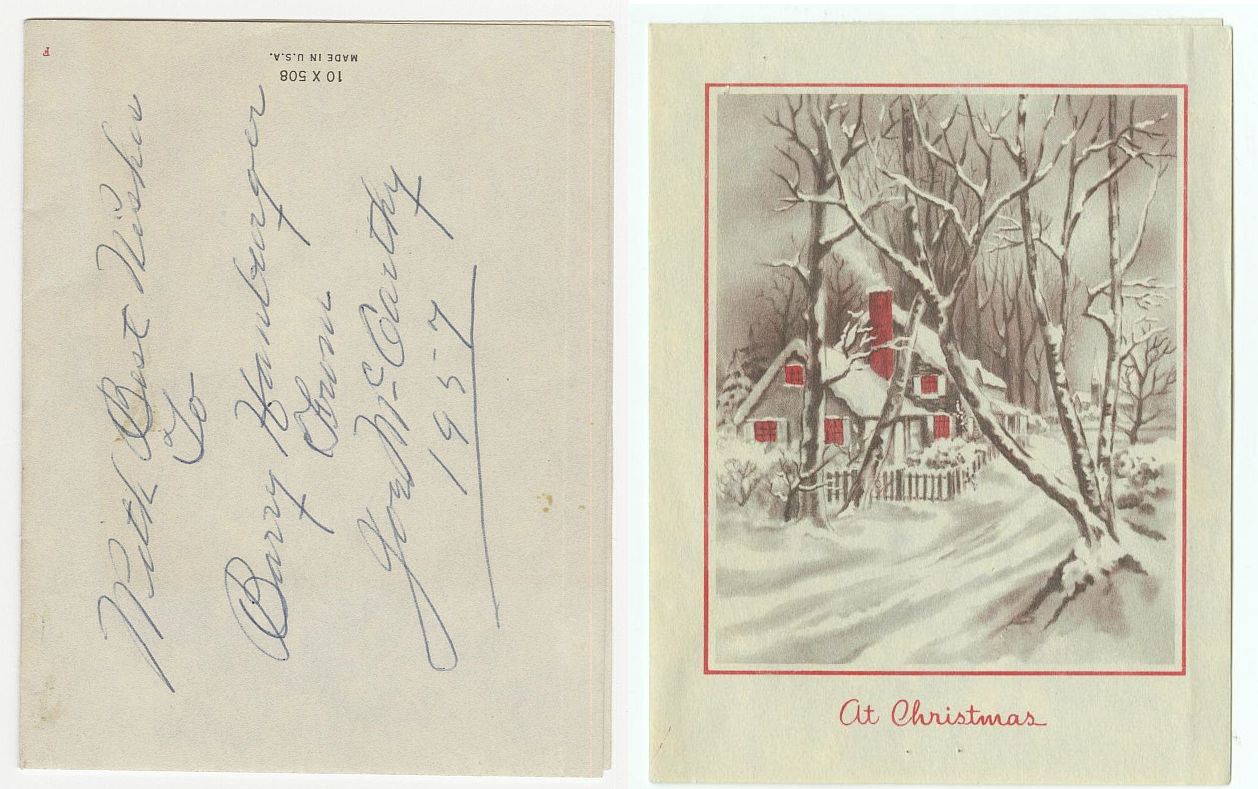 F
10 X 508
MADE IN U.S.A.
With Best Wishes
To
Barry Hamburger
From
Joe McCarthy
1957
At Christmas